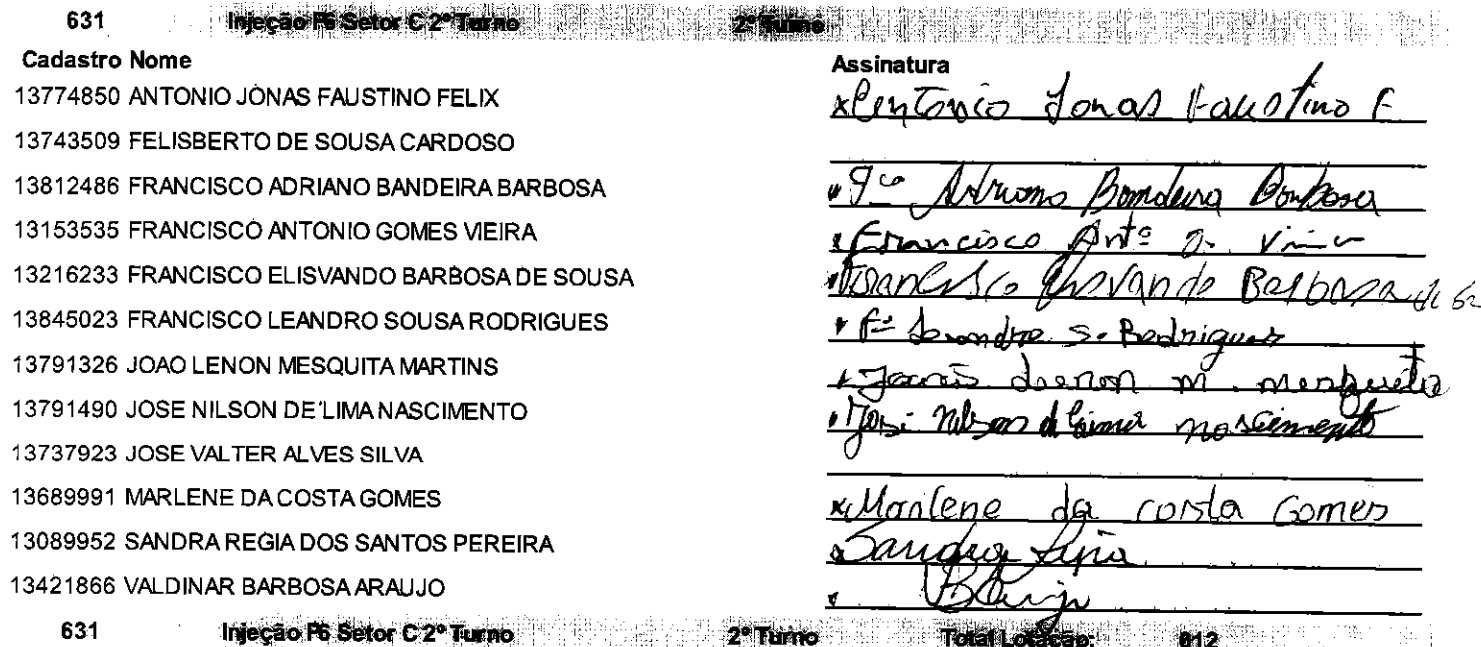 631 Injeção F6 Setor C 2º Turno 2º Turno
Cadastro Nome Assinatura
13774850 ANTONIO JONAS FAUSTINO FELIX x Antonio Jonas Faustino F
13743509 FELISBERTO DE SOUSA CARDOSO
13812486 FRANCISCO ADRIANO BANDEIRA BARBOSA Adriano Bandeira Barbosa
13153535 FRANCISCO ANTONIO GOMES VIEIRA Francisco Antº G.
13216233 FRANCISCO ELISVANDO BARBOSA DE SOUSA Francisco Elisvando Barbosa de
13845023 FRANCISCO LEANDRO SOUSA RODRIGUES Fº Leandro S. Rodrigues
13791326 JOAO LENON MESQUITA MARTINS Lenon M. Mesquita
13791490 JOSE NILSON DE LIMA NASCIMENTO José Nilson d Lima nascimento
13737923 JOSE VALTER ALVES SILVA
13689991 MARLENE DA COSTA GOMES x Marlene da costa Gomes
13089952 SANDRA REGIA DOS SANTOS PEREIRA Sandra
13421866 VALDINAR BARBOSA ARAUJO
631 Injeção F6 Setor C 2º Turno 2º Turno Total Lotação: 012